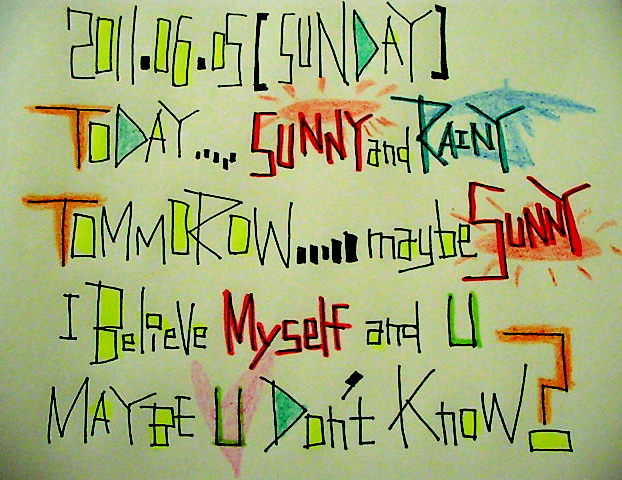 2011.06.05 [SUNDAY]
TODAY.... SUNNY and RAINY
TOMMOROW..... maybe SUNNY
I Believe Myself and U
MAYBE U Don't Know?